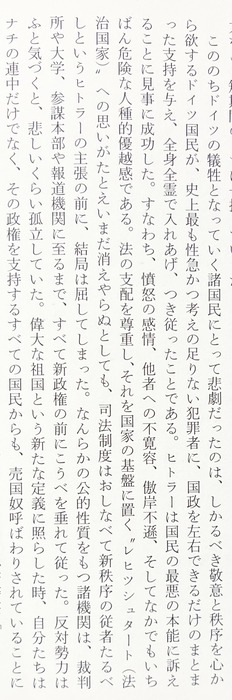 このののちドイツの犠牲となっていく諸国民にとって悲劇だったのは、しかるべき敬意と秩序を心か
ら欲するドイツ国民が、史上最も性急かつ考えの足りない犯罪者に、国政を左右できるだけのまとま
った支持を与え、全身全霊で入れあげ、つき従ったことである。ヒトラーは国民の最悪の本能に訴え
ることに見事に成功した。すなわち、憤怒の感情、他者への不寛容、傲岸不遜、そしてなかでもいち
ばん危険な人種的優越感である。法の支配を尊重し、それを国家の基盤に置く〝レヒツシュタート（法
治国家）〟への思いがたとえいまだ消えやらぬとしても、司法制度はおしなべて新秩序の従者たるべ
しというヒトラーの主張の前に、結局は屈してしまった。なんらかの公的性質をもつ諸機関は、裁判
所や大学、参謀本部や報道機関に至るまで、すべて新政権の前にこうべを垂れて従った。反対勢力は
ふと気づくと、悲しいくらい孤立していた。偉大な祖国という新たな定義に照らした時、自分たちは
ナチの連中だけでなく、その政権を支持するすべての国民からも、売国奴呼ばわりされていることに